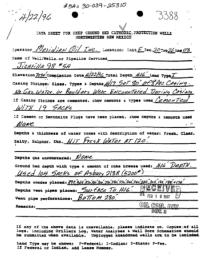 #30-039-25310
4/22/96
3388
DATA SHEET FOR DEEP GROUND BED CATHODIC PROTECTION WELLS
NORTHWESTERN NEW MEXICO
Operator Meridian Oil Inc. Location: Unit Sec.
Name of Well/Wells or Pipeline Serviced
Jicarilla 98
Elevation Completion Date Total Depth 416' Land Type
Casing Strings, Sizes, Types & Depths Set 90' Of 8" PVC Casing.
No Gas, Water, or Boulders Were Encountered During Casing.
If Casing Strings are cemented, show amounts & types used Cemented
With 19 Sacks
If Cement or Bentonite Plugs have been placed, show depths & amounts used
None
Depths & thickness of water zones with description of water: Fresh, Clear,
Salty, Sulphur, Etc. Hit Fresh Water At 120'.
Depths gas encountered: None
Ground bed depth with type & amount of coke breeze used: 416' Depth
Used 104 Sacks of Asbury 218R (5200#)
Depths anodes placed:
Depths vent pipes placed: Surface To 416'.
Vent pipe perforations: Bottom 280'.
Remarks:
RECEIVED
OIL CON. DIV.
DIST. 3
If any of the above data is unavailable, please indicate so. Copies of all
logs, including Drillers Log, Water Analyses & Well Bore Schematics should
be submitted when available. Unplugged abandoned wells are to be included.
Land Type may be shown: F-Federal; I-Indian; S-State; P-Fee.
If Federal or Indian, add Lease Number.